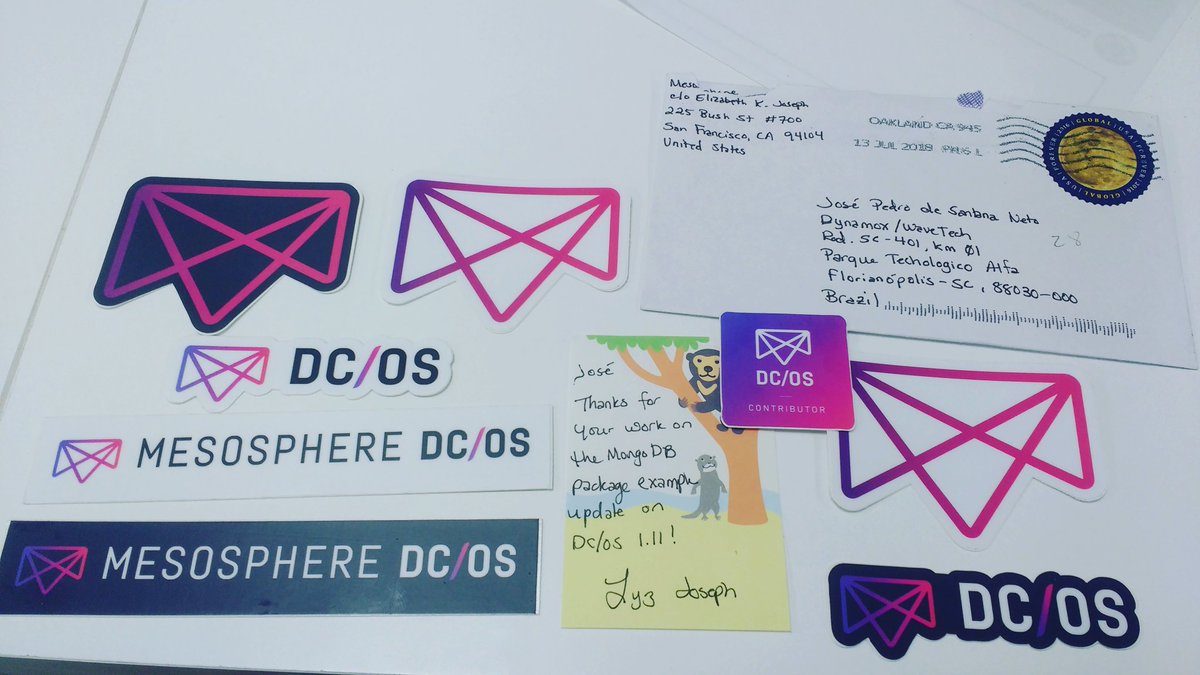 c/o Elizabeth K. Joseph
225 Bush St #700
San Francisco, CA 94104
United States
OAKLAND CA 945
13 JUL 2018 PM 6 L
FOREVER | 2016 | GLOBAL | USA | FOREVER | 2016 | GLOBAL | USA
José Pedro de Santana Neto
Dynamox/WaveTech
Rod. SC-401, Km 01
Parque Techologico Alfa
Florianópolis - SC, 88030-000
Brazil
28
DC/OS
MESOSPHERE DC/OS
MESOSPHERE DC/OS
José
Thanks for
your work on
the MongoDB
package example
update on
DC/OS 1.11!
Lyz Joseph
DC/OS
CONTRIBUTOR
DC/OS